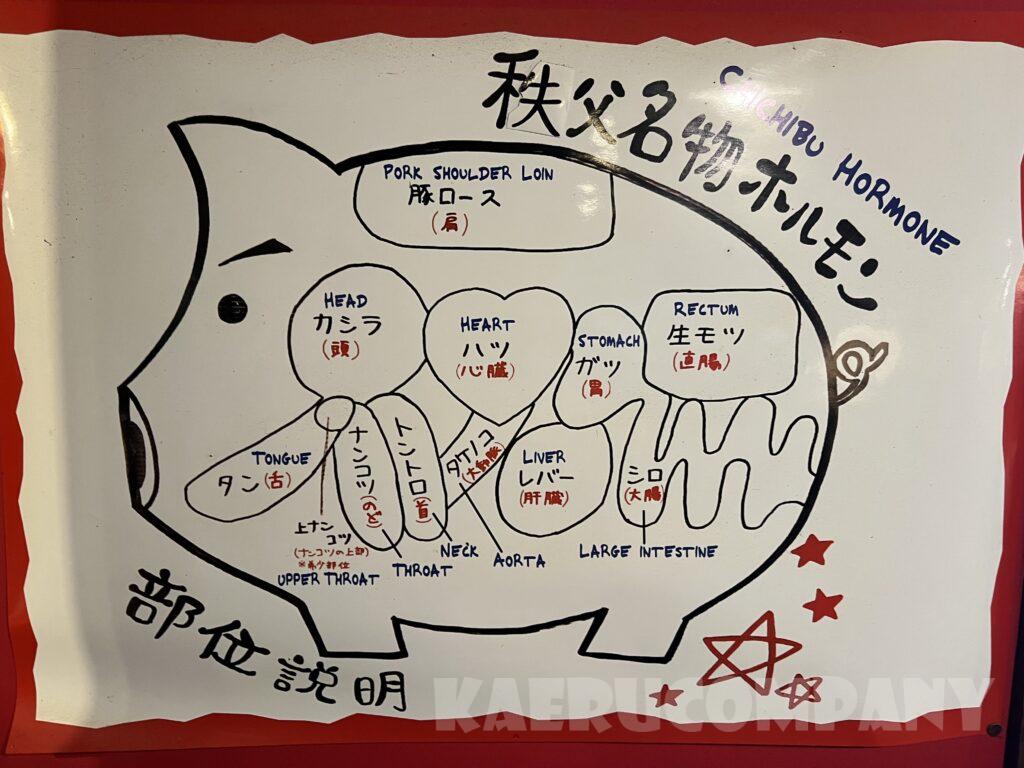 秩父名物ホルモン
CHICHIBU HORMONE
PORK SHOULDER LOIN
豚ロース
(肩)
HEAD
カシラ
(頭)
HEART
ハツ
(心臓)
STOMACH
ガツ
(胃)
RECTUM
生モツ
(直腸)
TONGUE
タン(舌)
上ナン
コツ
(ナンコツの上部)
※希少部位
UPPER THROAT
ナンコツ(のど)
THROAT
トントロ(首)
NECK
タケノコ
(大動脈)
AORTA
LIVER
レバー
(肝臓)
シロ
(大腸)
LARGE INTESTINE
部位説明
KAERUCOMPANY